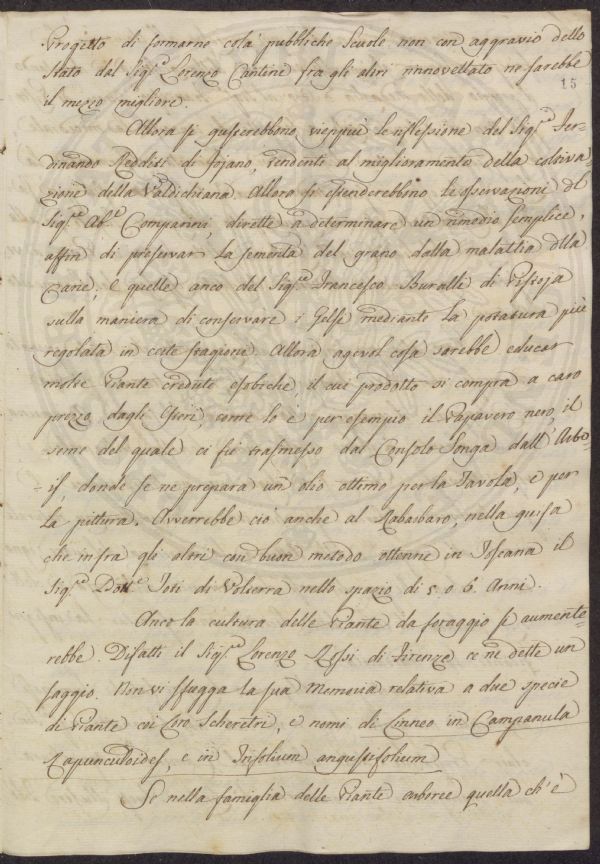 Progetto di formarne colà pubbliche Scuole non con aggravio dello
Stato dal Sig.r Lorenzo Cantini fra gli altri rinnovellato ne sarebbe
15
il mezzo migliore.
Allora si gusterebbono vieppiù le riflessione del Sig.r Fer-
dinando Redditi di Fojano, tendenti al miglioramento della coltiva-
zione della Valdichiana. Allora si estenderebbono le osservazioni del
Sig.r Ab.e Comparini, dirette a determinare un rimedio semplice,
affin di preservar la sementa del grano dalla malattia della
Carie, e quelle anco del Sig.re Francesco Buralli di Pistoja
sulla maniera di conservare i Gelsi mediante la potatura più
regolata in certe stagioni. Allora agevol cosa sarebbe educar
molte Piante credute esotiche il cui prodotto si compra a caro
prezzo dagli Esteri, come lo è per esempio il Papavero nero, il
seme del quale ci fù trasmesso dal Consolo Songa dall' Arto-
is, donde se ne prepara un olio ottimo per la Tavola, e per
la pittura. Avverrebbe ciò anche al Rabarbaro, nella guisa
che infra gli altri con buon metodo ottenne in Toscana il
Sig.r Dott.e Toti di Volterra nello spazio di 5 o 6. Anni.
Anco la cultura delle Piante da foraggio si aumente-
rebbe. Difatti il Sig.r Lorenzo Rossi di Firenze ce ne dette un
saggio. Non vi sfugga la sua Memoria relativa a due specie
di Piante coi loro Scheretri, e nomi di Linneo in Campanula
Rapunculoides, e in Trifolium angustifolium
Se nella famiglia delle Piante erboree quella ch'è